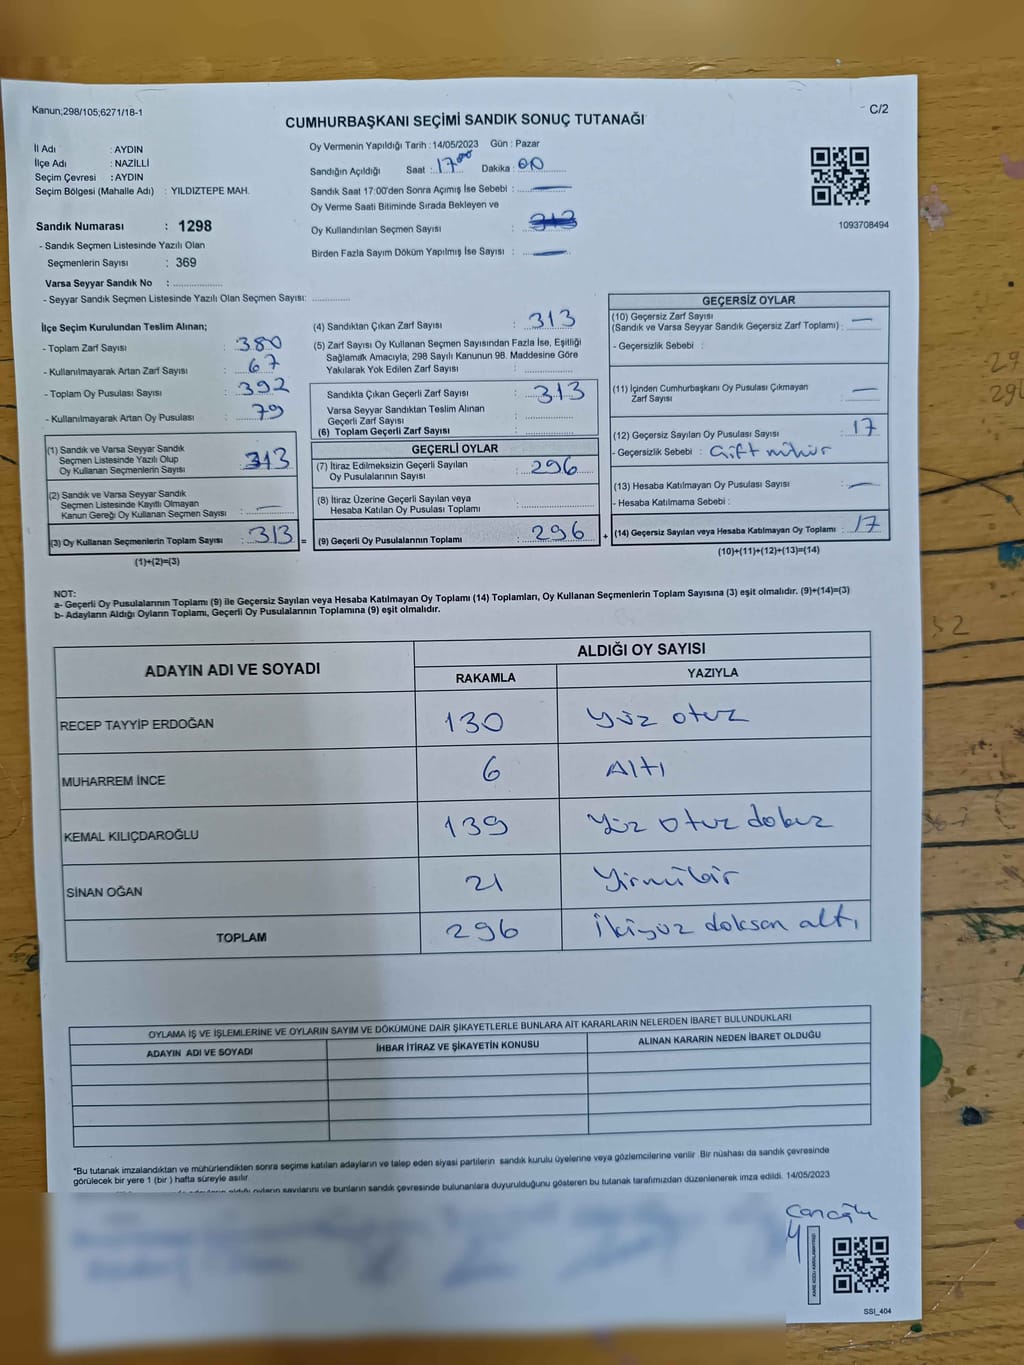 Kanun;298/105;6271/18-1
C/2
CUMHURBAŞKANI SEÇİMİ SANDIK SONUÇ TUTANAĞI
İl Adı : AYDIN
İlçe Adı : NAZİLLİ
Seçim Çevresi : AYDIN
Seçim Bölgesi (Mahalle Adı) : YILDIZTEPE MAH.
Sandık Numarası : 1298
- Sandık Seçmen Listesinde Yazılı Olan
Seçmenlerin Sayısı : 369
Varsa Seyyar Sandık No : ..................
- Seyyar Sandık Seçmen Listesinde Yazılı Olan Seçmen Sayısı: ..............
Oy Vermenin Yapıldığı Tarih : 14/05/2023 Gün : Pazar
Sandığın Açıldığı Saat : 17 00 Dakika : 00
Sandık Saat 17:00'den Sonra Açımış İse Sebebi : —
Oy Verme Saati Bitiminde Sırada Bekleyen ve
Oy Kullandırılan Seçmen Sayısı : 313
Birden Fazla Sayım Döküm Yapılmış İse Sayısı : —
1093708494
İlçe Seçim Kurulundan Teslim Alınan;
- Toplam Zarf Sayısı : 380
- Kullanılmayarak Artan Zarf Sayısı : 67
- Toplam Oy Pusulası Sayısı : 392
- Kullanılmayarak Artan Oy Pusulası : 79
(1) Sandık ve Varsa Seyyar Sandık
Seçmen Listesinde Yazılı Olup
Oy Kullanan Seçmenlerin Sayısı : 313
(2) Sandık ve Varsa Seyyar Sandık
Seçmen Listesinde Kayıtlı Olmayan
Kanun Gereği Oy Kullanan Seçmen Sayısı : —
(3) Oy Kullanan Seçmenlerin Toplam Sayısı : 313 =
(1)+(2)=(3)
(4) Sandıktan Çıkan Zarf Sayısı : 313
(5) Zarf Sayısı Oy Kullanan Seçmen Sayısından Fazla İse, Eşitliği
Sağlamak Amacıyla, 298 Sayılı Kanunun 98. Maddesine Göre
Yakılarak Yok Edilen Zarf Sayısı : ..............
Sandıkta Çıkan Geçerli Zarf Sayısı : 313
Varsa Seyyar Sandıktan Teslim Alınan
Geçerli Zarf Sayısı : ..............
(6) Toplam Geçerli Zarf Sayısı : ..............
GEÇERLİ OYLAR
(7) İtiraz Edilmeksizin Geçerli Sayılan
Oy Pusulalarının Sayısı : 296
(8) İtiraz Üzerine Geçerli Sayılan veya
Hesaba Katılan Oy Pusulası Toplamı : ..............
(9) Geçerli Oy Pusulalarının Toplamı : 296 +
GEÇERSİZ OYLAR
(10) Geçersiz Zarf Sayısı
(Sandık ve Varsa Seyyar Sandık Geçersiz Zarf Toplamı) : —
- Geçersizlik Sebebi :
(11) İçinden Cumhurbaşkanı Oy Pusulası Çıkmayan
Zarf Sayısı : —
(12) Geçersiz Sayılan Oy Pusulası Sayısı : 17
- Geçersizlik Sebebi : Çift mühür
(13) Hesaba Katılmayan Oy Pusulası Sayısı : —
- Hesaba Katılmama Sebebi :
(14) Geçersiz Sayılan veya Hesaba Katılmayan Oy Toplamı : 17
(10)+(11)+(12)+(13)=(14)
NOT:
a- Geçerli Oy Pusulalarının Toplamı (9) ile Geçersiz Sayılan veya Hesaba Katılmayan Oy Toplamı (14) Toplamları, Oy Kullanan Seçmenlerin Toplam Sayısına (3) eşit olmalıdır. (9)+(14)=(3)
b- Adayların Aldığı Oyların Toplamı, Geçerli Oy Pusulalarının Toplamına (9) eşit olmalıdır.
ADAYIN ADI VE SOYADI
ALDIĞI OY SAYISI
RAKAMLA YAZIYLA
RECEP TAYYİP ERDOĞAN 130 Yüz otuz
MUHARREM İNCE 6 Altı
KEMAL KILIÇDAROĞLU 139 Yüz otuz dokuz
SİNAN OĞAN 21 Yirmibir
TOPLAM 296 İkiyüz doksan altı
OYLAMA İŞ VE İŞLEMLERİNE VE OYLARIN SAYIM VE DÖKÜMÜNE DAİR ŞİKAYETLERLE BUNLARA AİT KARARLARIN NELERDEN İBARET BULUNDUKLARI
ADAYIN ADI VE SOYADI İHBAR İTİRAZ VE ŞİKAYETİN KONUSU ALINAN KARARIN NEDEN İBARET OLDUĞU
*Bu tutanak imzalandıktan ve mühürlendikten sonra seçime katılan adayların ve talep eden siyasi partilerin sandık kurulu üyelerine veya gözlemcilerine verilir. Bir nüshası da sandık çevresinde
görülecek bir yere 1 (bir ) hafta süreyle asılır.
oyların sayılarını ve bunların sandık çevresinde bulunanlara duyurulduğunu gösteren bu tutanak tarafımızdan düzenlenerek imza edildi. 14/05/2023
SSI_404